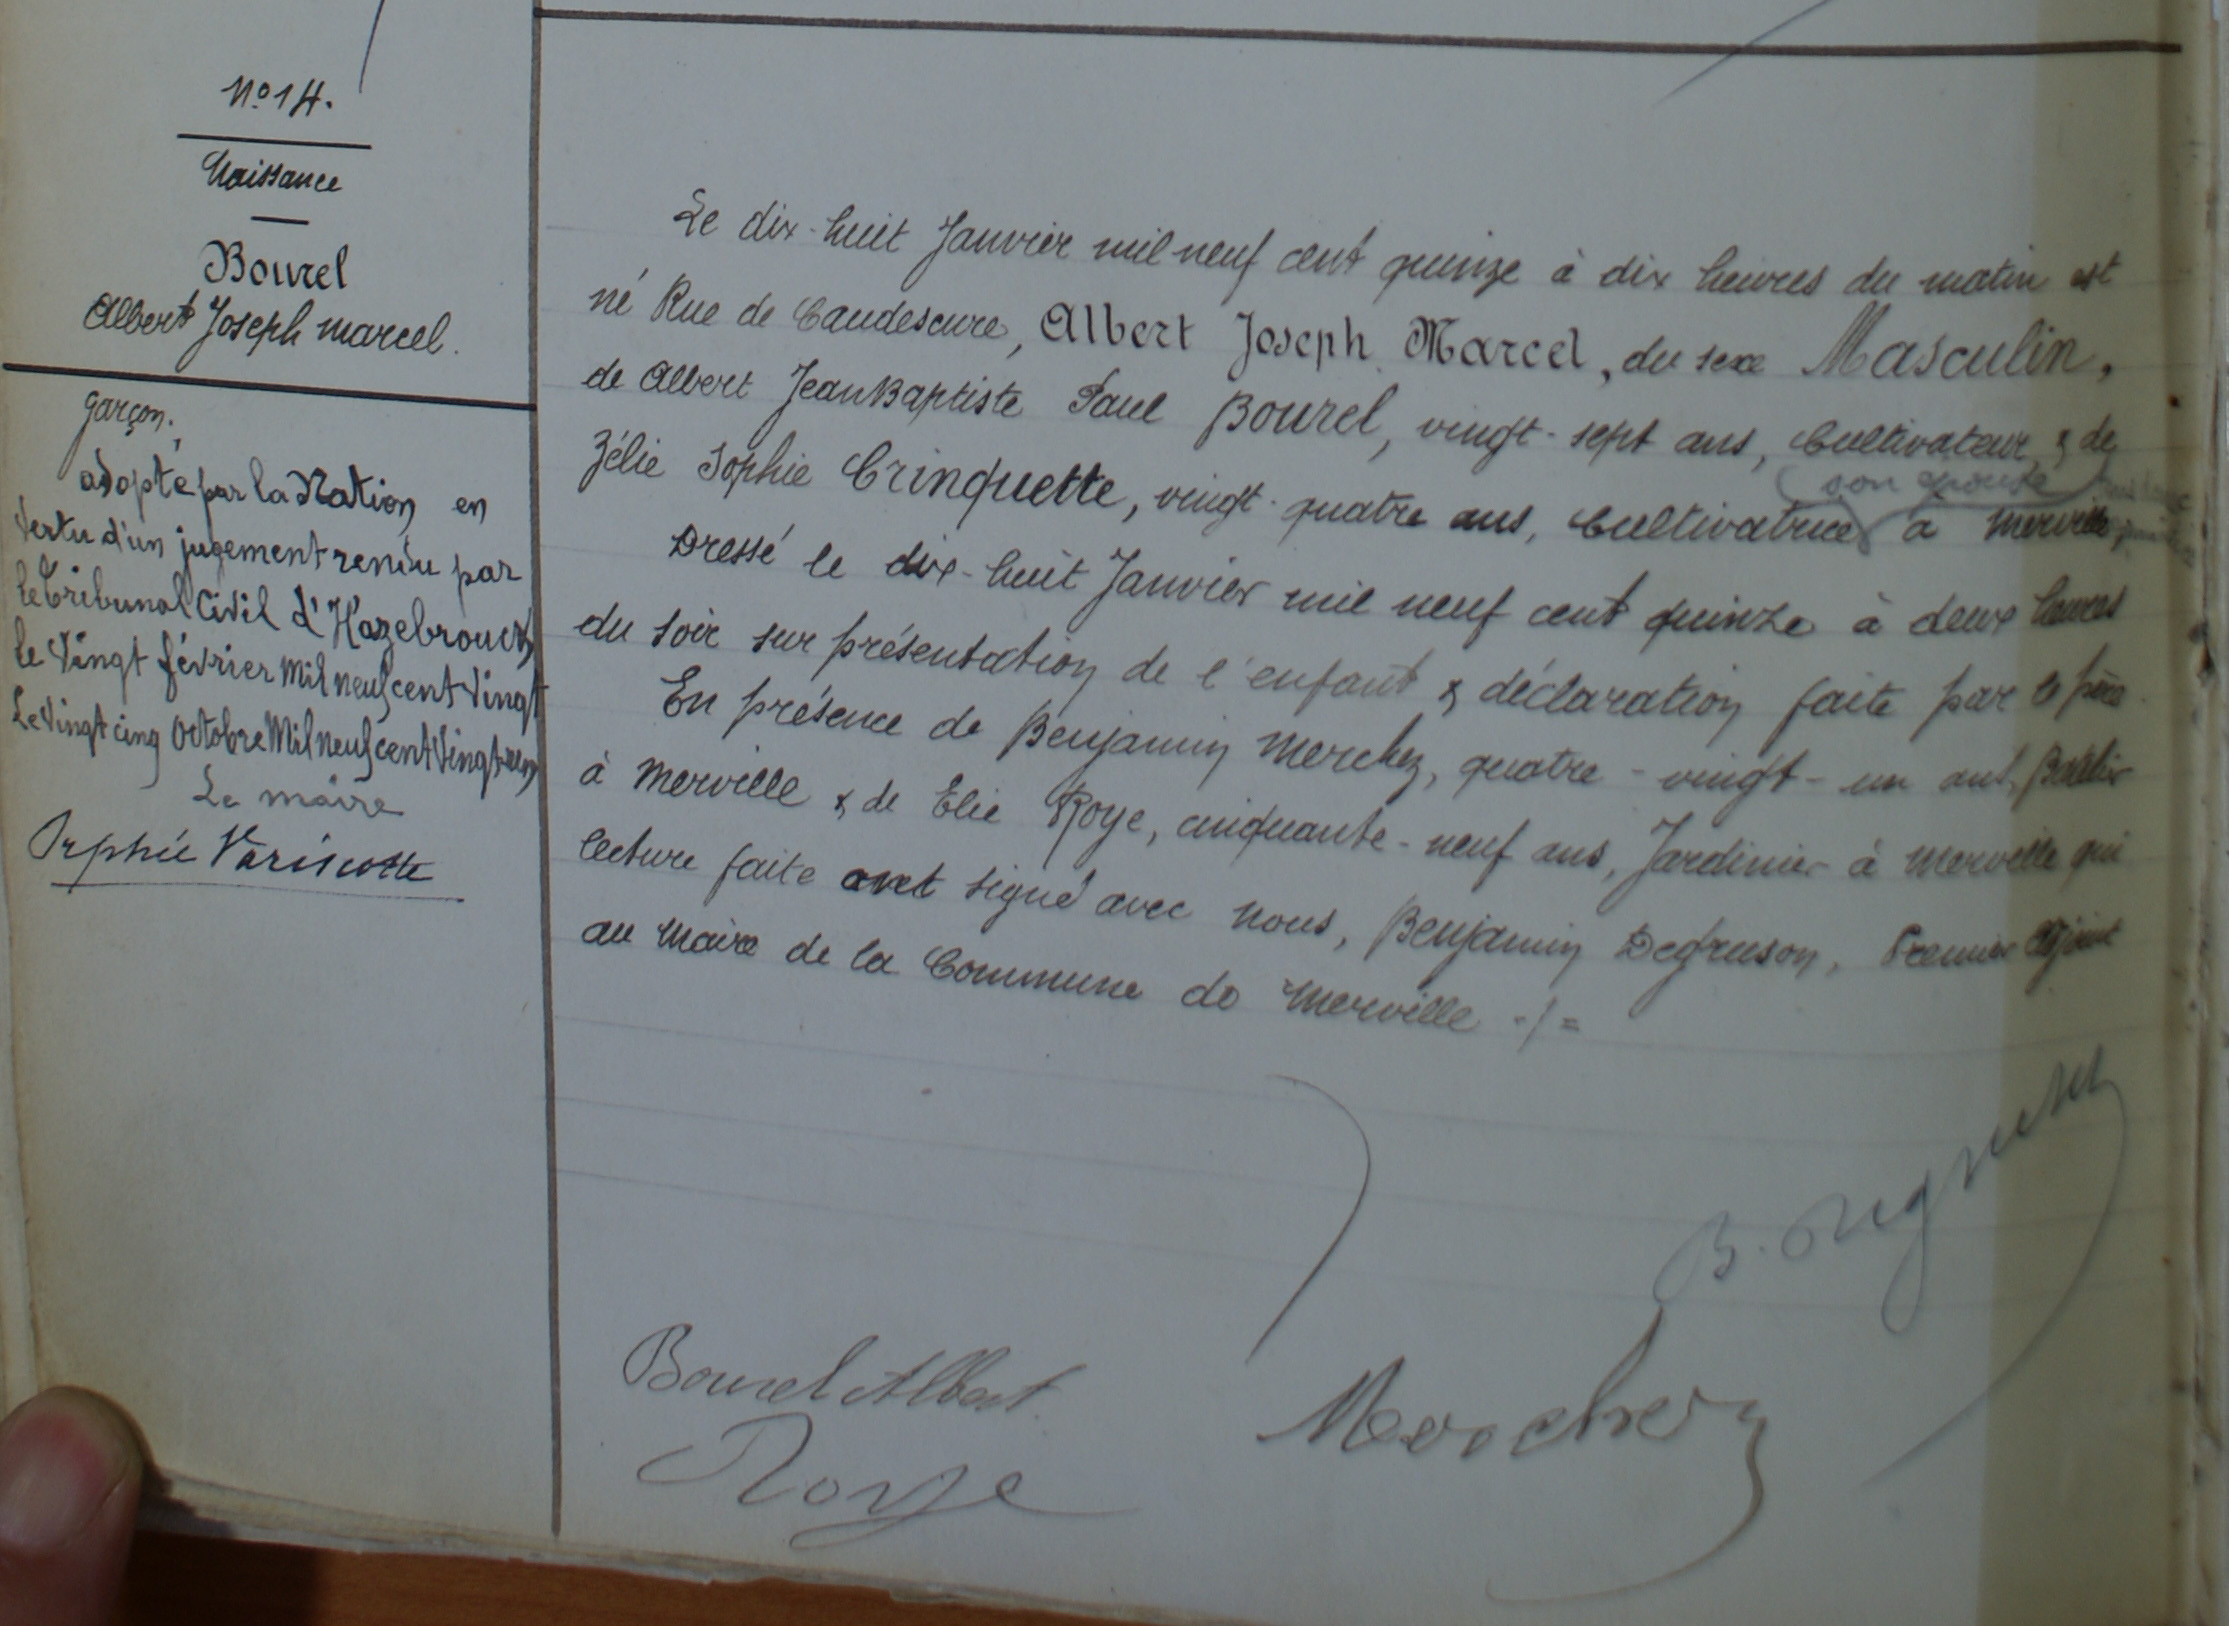 Nº 14.
Naissance
Bourel
Albert Joseph Marcel.
garçon.
adopté par la Nation en
vertu d'un jugement rendu par
le Tribunal Civil d'Hazebrouck
le Vingt février Mil neuf cent Vingt
Le Vingt cinq Octobre Mil neuf cent Vingt un
Le maire
Orphée Variscotte
Le dix-huit Janvier mil neuf cent quinze à dix heures du matin est
né Rue de Caudescure, Albert Joseph Marcel, du sexe Masculin,
de Albert Jean Baptiste Paul Bourel, vingt-sept ans, Cultivateur & de
son épouse
Zélie Sophie Crinquette, vingt-quatre ans, Cultivatrice à Merville,
Dressé le dix-huit Janvier mil neuf cent quinze à deux heures
du soir sur présentation de l'enfant & déclaration faite par le père.
En présence de Benjamin Merchez, quatre-vingt-un ans,
à Merville & de Elie Roye, cinquante-neuf ans, Jardinier à Merville qui
lecture faite ont signé avec nous, Benjamin Degruson, Premier Adjoint
au Maire de la Commune de Merville -/=
Bourel Albert
Roye
Merchez